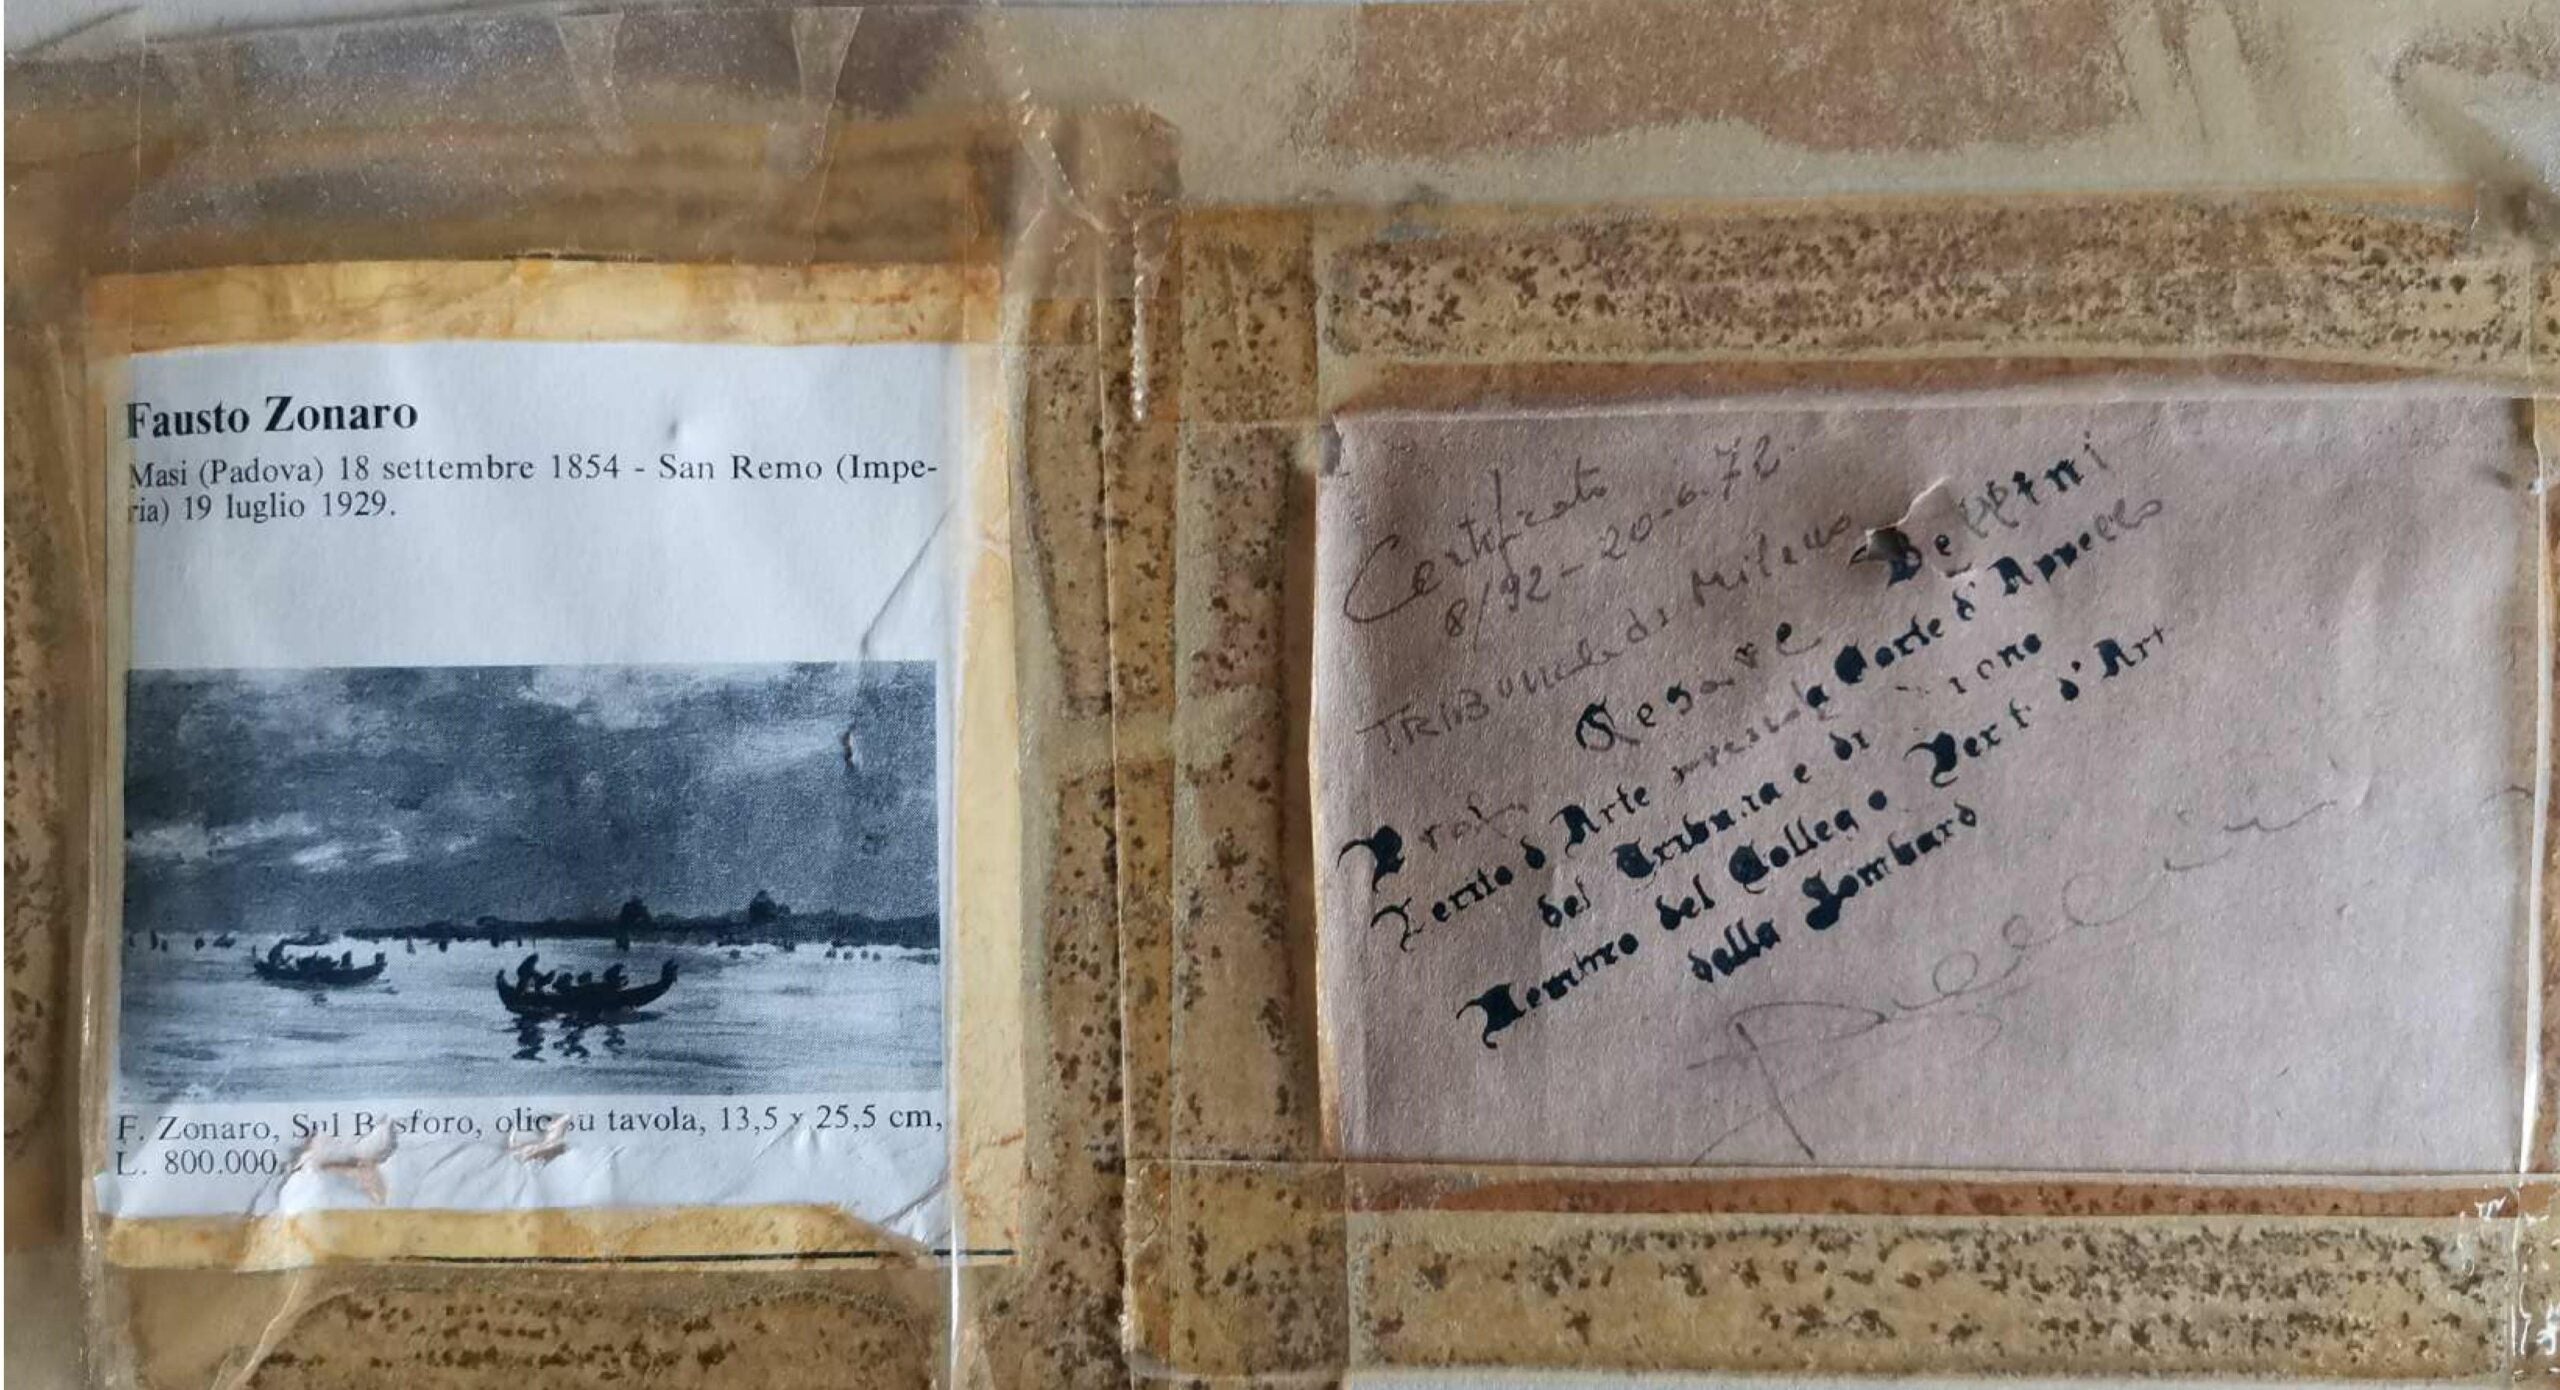 Fausto Zonaro
Masi (Padova) 18 settembre 1854 - San Remo (Impe-
ria) 19 luglio 1929.
F. Zonaro, Sul Bosforo, olio su tavola, 13,5 x 25,5 cm,
L. 800.000.
Certificato
8/92-20-6-72.
TRIBUNale di Milano
Cesare Bellini
Perito d'Arte presso la Corte d'Appello
del Tribuna e di
Membro del Colleg o Per t d'Art
della Lombard